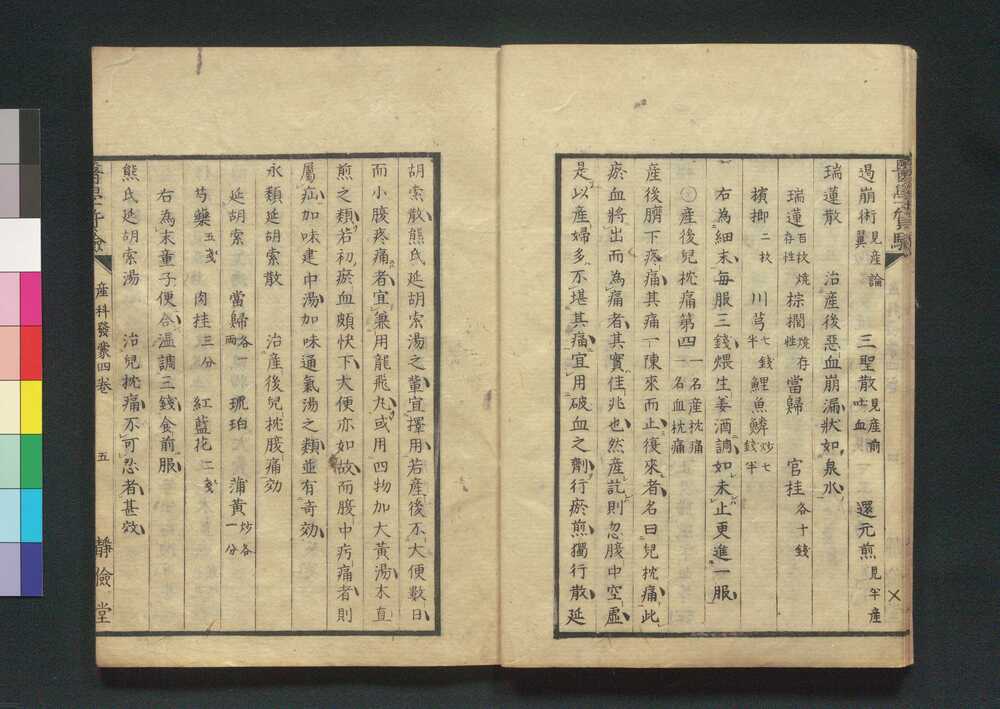 過崩術 見産論翼 三聖散 見産前吐血 還元煎 見半産
瑞蓮散 治産後惡血崩漏狀如泉水
瑞蓮 百枚燒存性 棕櫚 燒存性 當歸 官桂 各十錢
檳榔 二枚 川芎 七錢半 鯉魚鱗 炒七錢半
右為細末毎服三錢煨生姜酒調如未止更進一服
産後兒枕痛第四 一名産枕痛 一名血枕痛
産後臍下疼痛其痛一陳來而止復來者名曰兒枕痛此
瘀血將出而為痛者其實佳兆也然産訖則忽腹中空虛
是以産婦多不堪其痛宜用破血之劑行瘀煎獨行散延
胡索散熊氏延胡索湯之輩宜擇用若産後不大便數日
而小腹疼痛者宜兼用龍飛丸或用四物加大黄湯木直
煎之類若初瘀血頗快下大便亦如故而腹中疞痛者則
屬疝加味建中湯加味通氣湯之類並有奇効
永類延胡索散 治産後兒枕腹痛効
延胡索 當歸 各一兩 琥珀 蒲黄 炒各一分
芍藥 五戔 肉桂 三分 紅藍花 二戔
右為末童子便合温調三錢食前服
熊氏延胡索湯 治兒枕痛不可忍者甚效
産科發蒙四卷 五 靜儉堂